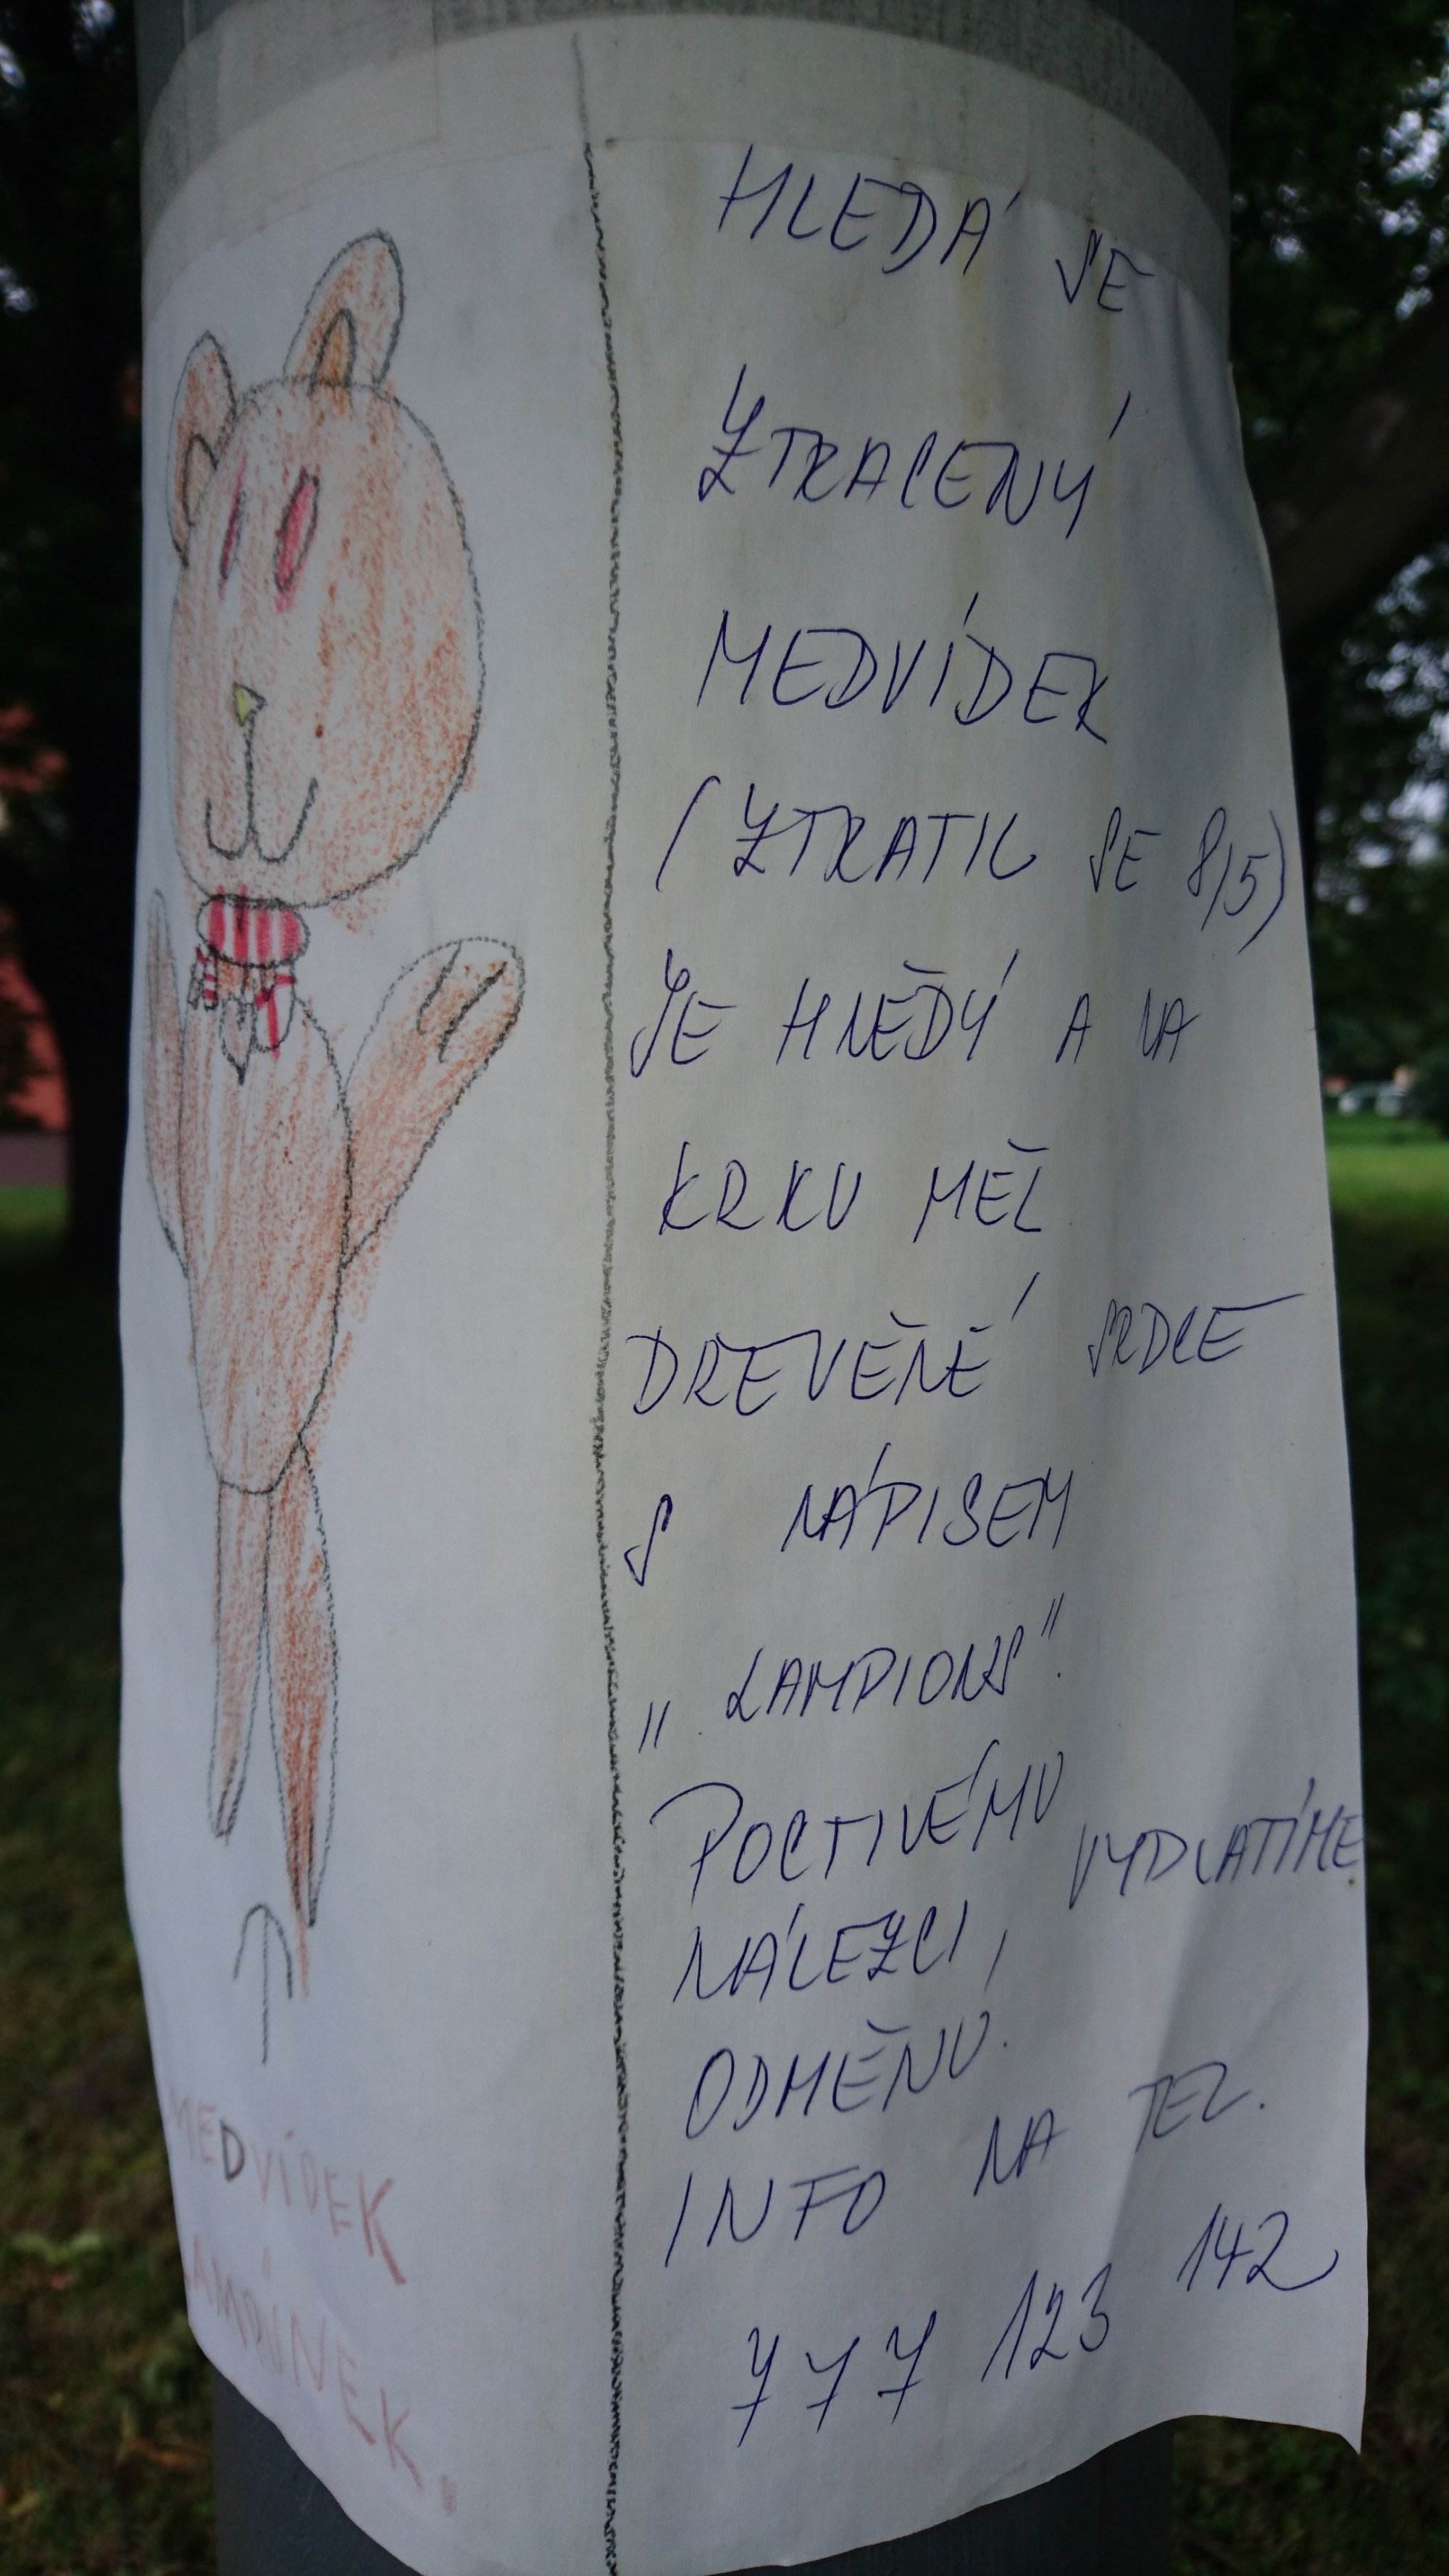 HLEDÁ SE
ZTRACENÝ
MEDVÍDEK
(ZTRATIL SE 8/5)
JE HNĚDÝ A NA
KRKU MĚL
DŘEVĚNÉ SRDCE
S NÁPISEM
„LAMPIONS".
POCTIVÉMU VYPLATÍME
NÁLEZCI,
ODMĚNU.
INFO NA TEL.
777 123 142
MEDVÍDEK